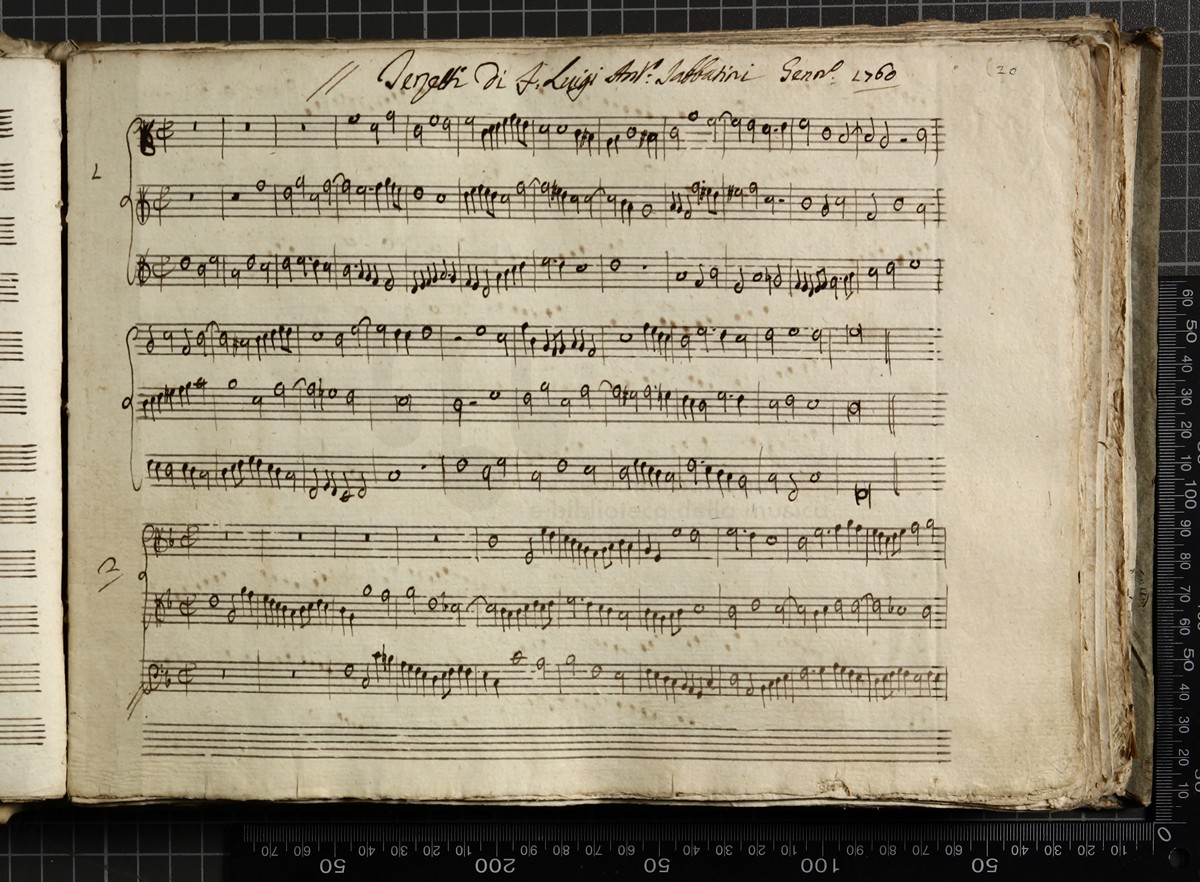 // Terzetti Di F. Luigi Ant.º Sabbatini Genn.º 1760
(20
1
2
e-biblioteca della musica
60 50 40 30 20 10 100 90 80 70 60 50 40 30 20 10 0
70 60 50 40 30 20 10 200 90 80 70 60 50 40 30 20 10 100 90 80 70 60 50 40 30 20 10 0